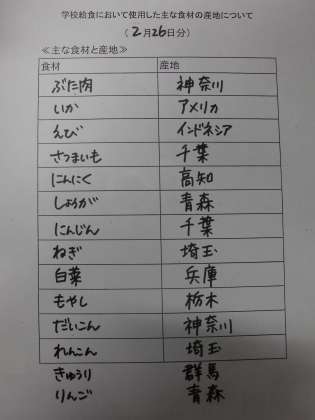 学校給食において使用した主な食材の産地について
(2月26日分)
≪主な食材と産地≫
食材 産地
ぶた肉 神奈川
いか アメリカ
えび インドネシア
さつまいも 千葉
にんにく 高知
しょうが 青森
にんじん 千葉
ねぎ 埼玉
白菜 兵庫
もやし 栃木
だいこん 神奈川
れんこん 埼玉
きゅうり 群馬
りんご 青森